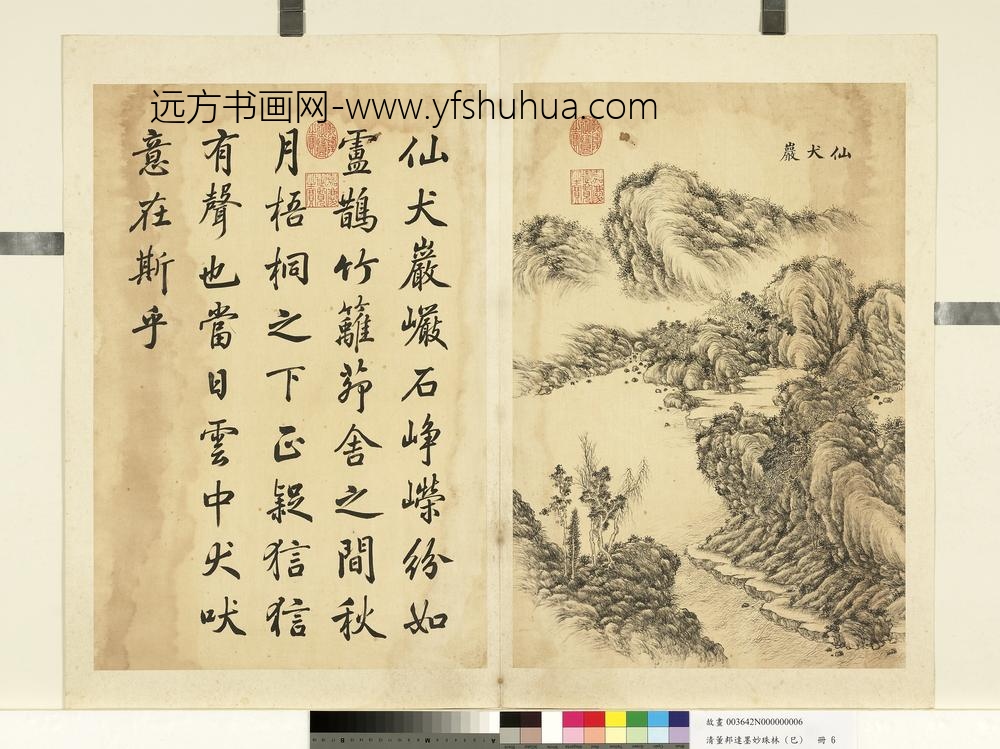 远方书画网-www.yfshuhua.com
仙犬巖
仙犬巖巗石崢嶸紛如
盧鵲竹籬茆舍之間秋
月梧桐之下正疑狺狺
有聲也當日雲中犬吠
意在斯乎
故畫 003642N000000006
清董邦達墨妙珠林(巳) 冊 6